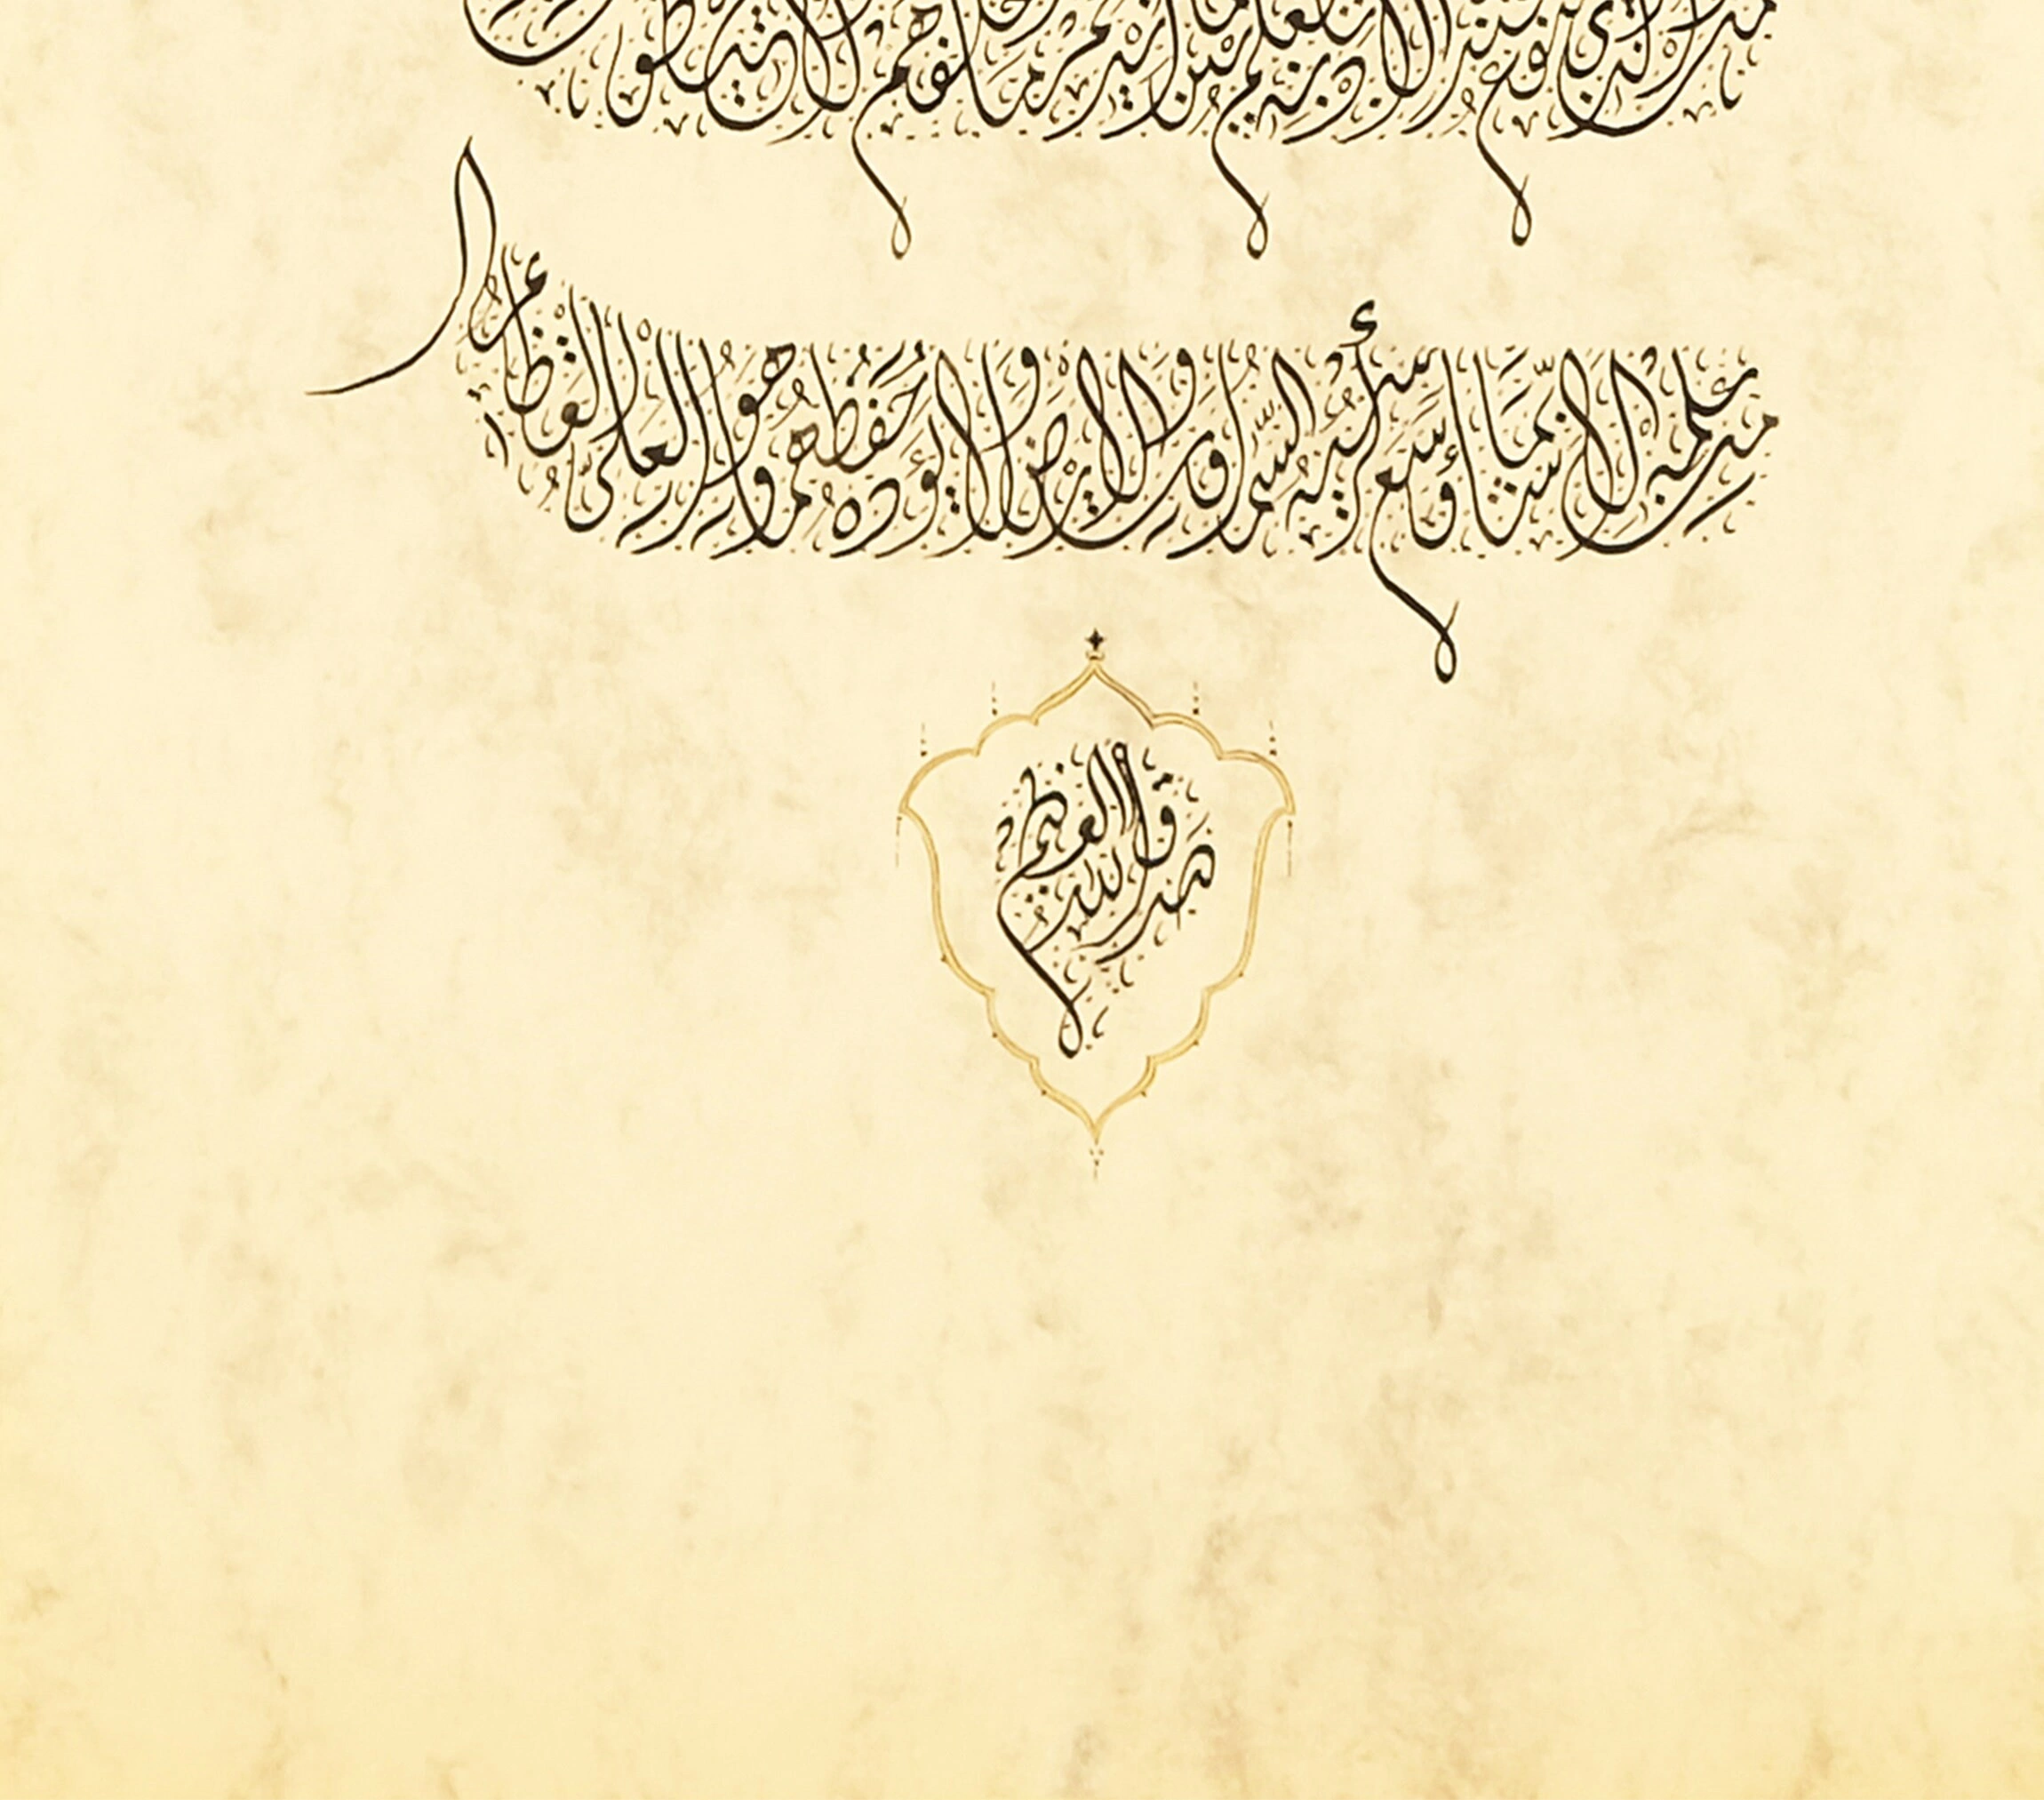 من ذا الذي يشفع عنده إلا بإذنه يعلم ما بين أيديهم وما خلفهم ولا يحيطون بشيء
من علمه إلا بما شاء وسع كرسيه السموات والأرض ولا يؤده حفظهما وهو العلي العظيم
صدق الله العظيم